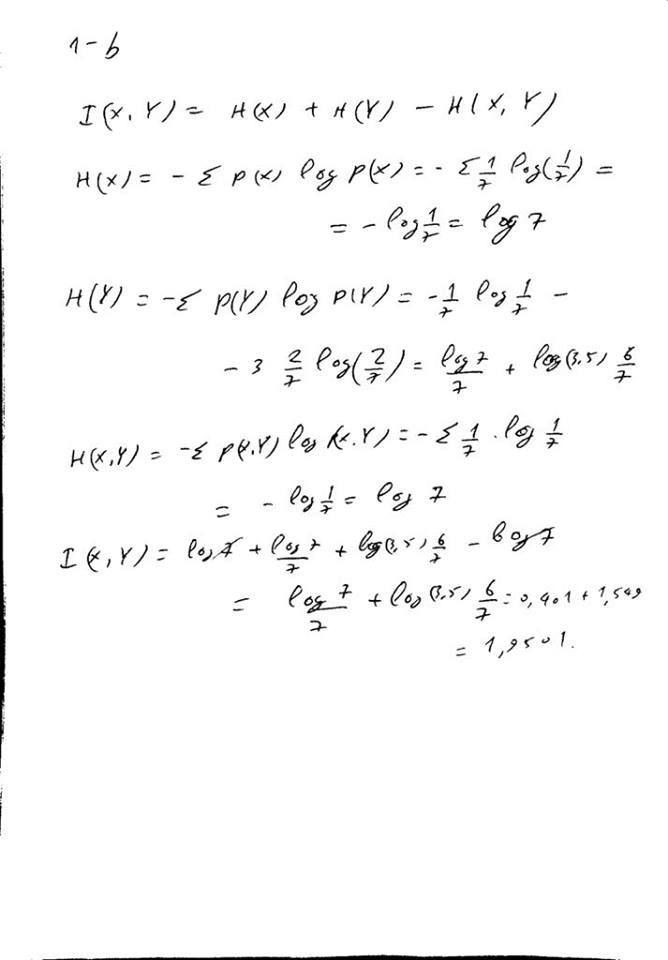 1-b
I(X,Y) = H(X) + H(Y) - H(X,Y)
H(X) = - Σ p(x) log p(x) = - Σ 1/7 log(1/7) =
= - log 1/7 = log 7
H(Y) = -Σ p(Y) log p(Y) = - 1/7 log 1/7 -
- 3 2/7 log(2/7) = log 7/7 + log(3,5) 6/7
H(X,Y) = -Σ p(X,Y) log p(X,Y) = - Σ 1/7 · log 1/7
= - log 1/7 = log 7
I(X,Y) = log 7 + log 7/7 + log(3,5) 6/7 - log 7
= log 7/7 + log(3,5) 6/7 = 0,401 + 1,549
= 1,9501.